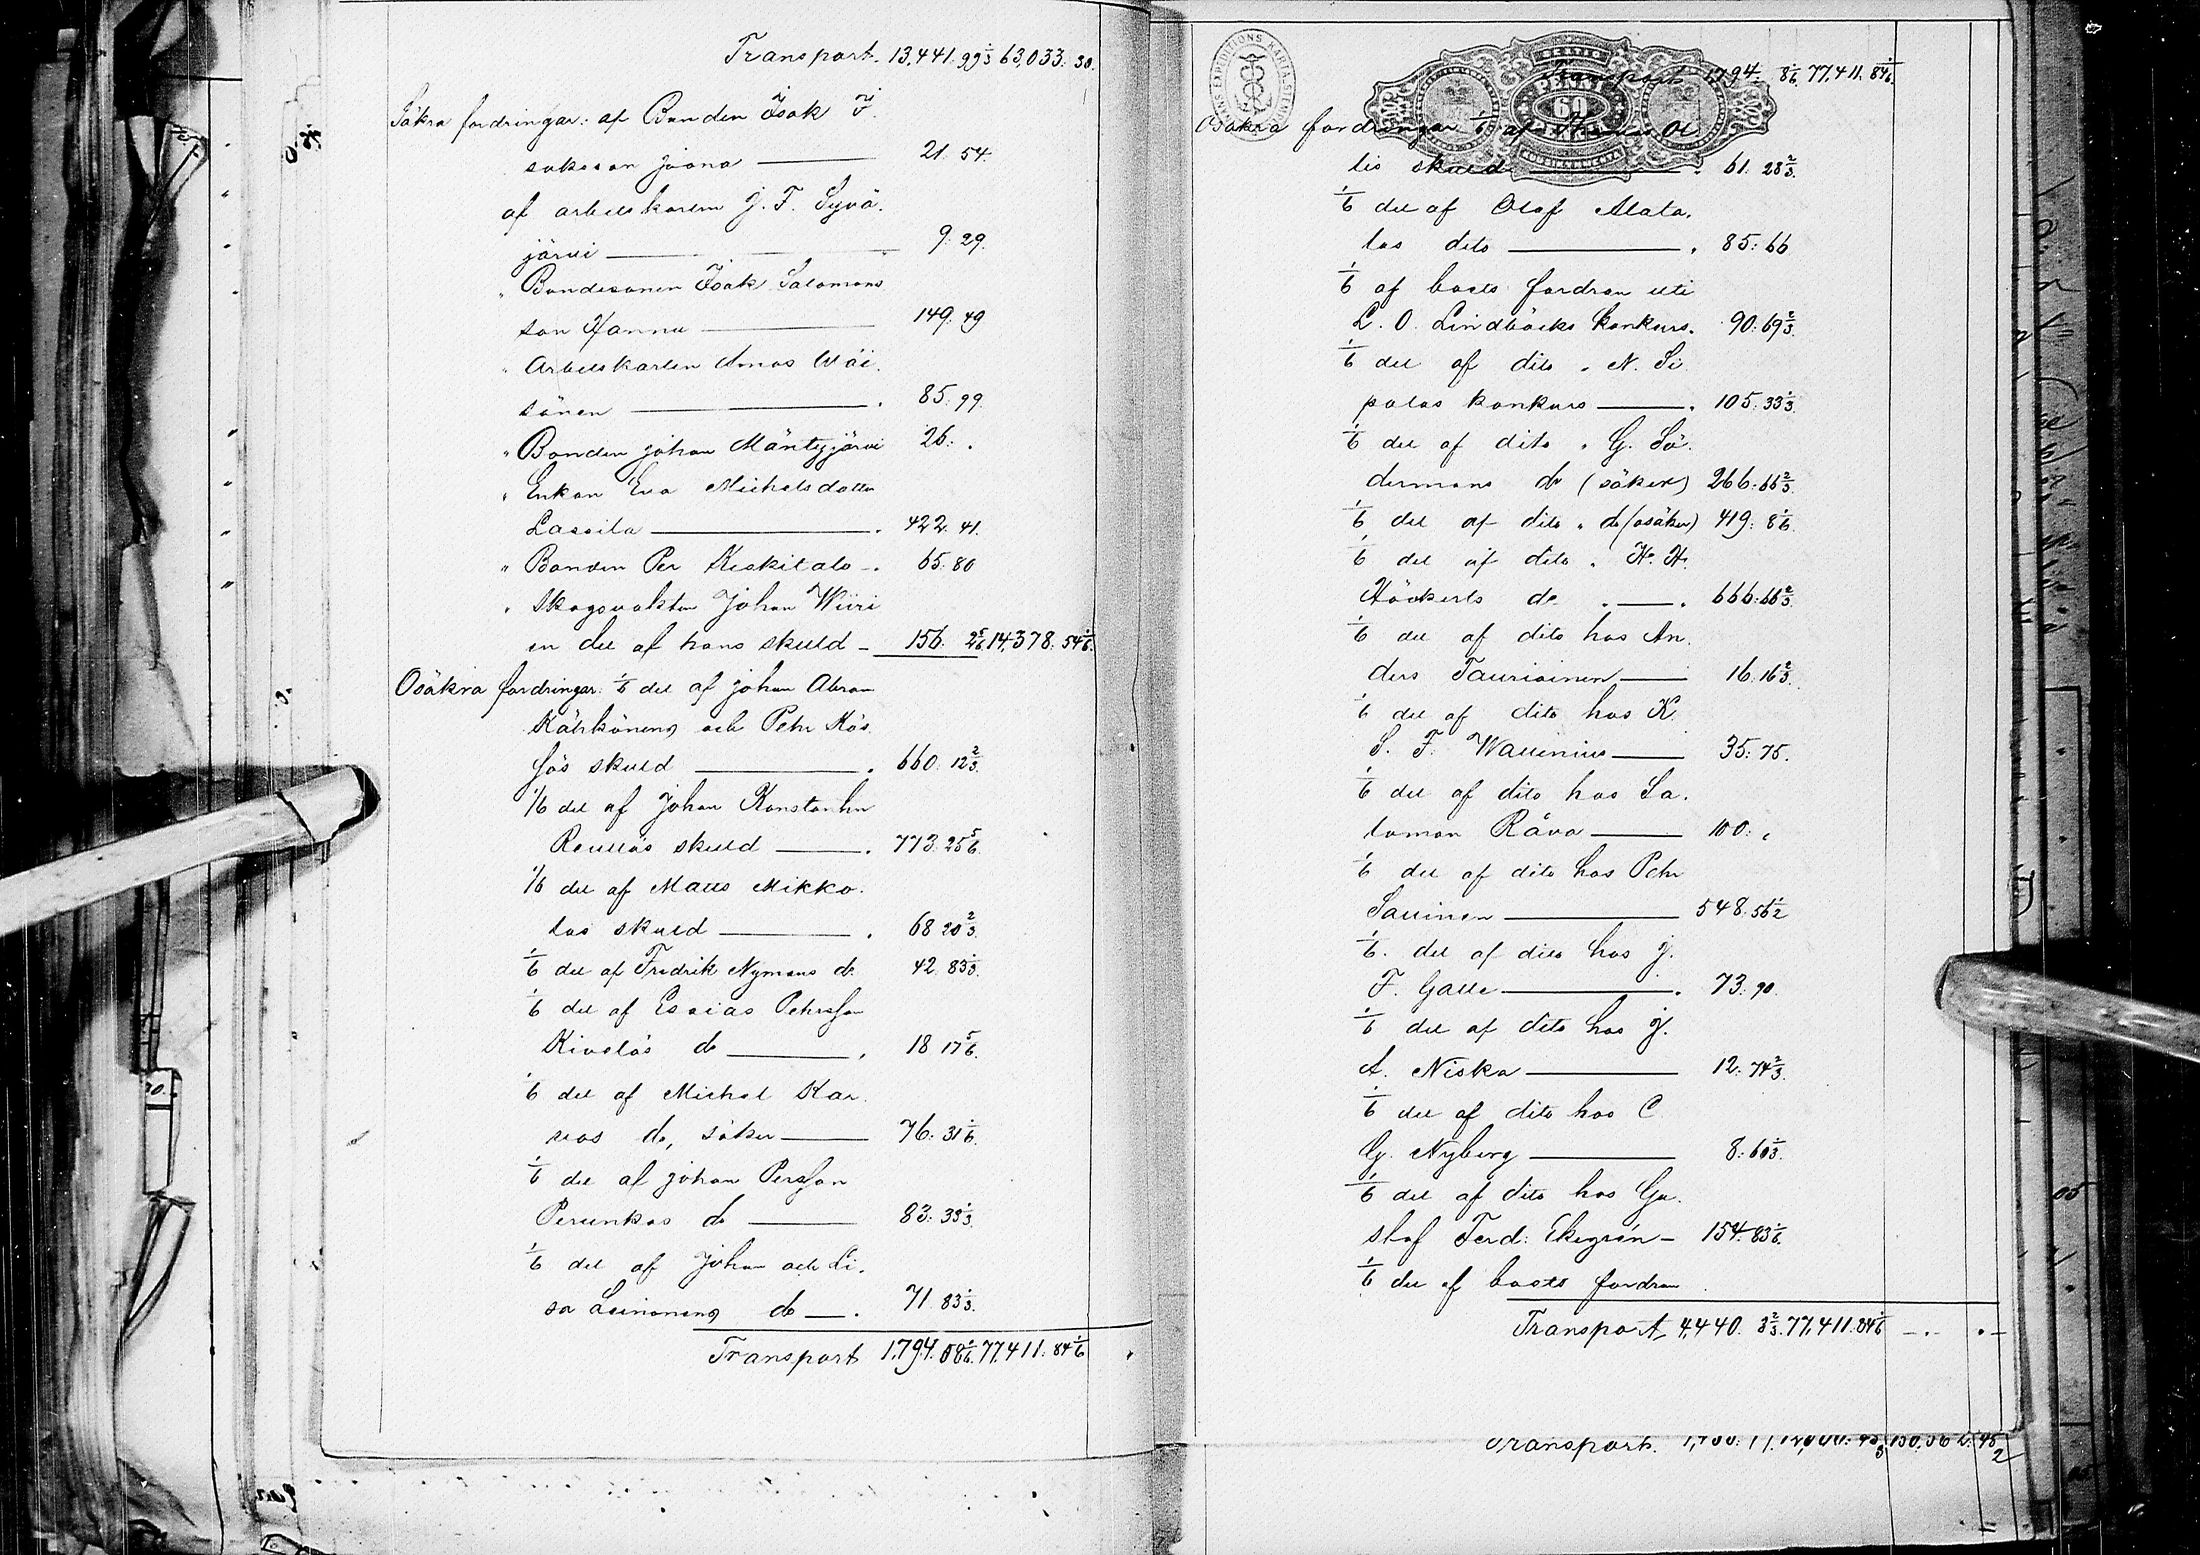 Transport. 13,441. 99⅓ 63,033. 30.
Säkra fordringar: af Bonden Isak I
saksson Joona — 21. 54.
af arbetskarlen J. F. Syvä.
järvi — 9. 29.
" Bondesonen Isak Salomons
son Hannu — 149. 49
" Arbetskarlen Amos Wäi.
sänen — 85. 99.
" Bonden Johan Mäntyjärvi 26. .
" Enkan Eva Michelsdotter
Lassila — 422. 41.
" Bonden Per Keskitalo — 65. 80
" Skogsvakten Johan Wiiri
en del af hans skuld — 156. 2⅚ 14,378. 54⅙.
Osäkra fordringar: 1/6 del af Johan Abram
Kähkönens och Pehr Kös
fös skuld — 660. 12⅔.
1/6 del af Johan Konstantin
Reullas skuld — 773. 25⅚.
1/6 del af Matts Mikko.
las skuld — 68 20⅔.
1/6 del af Fredrik Nymans do 42. 83⅓.
1/6 del af Esaias Pehrsson
Kiveläs do — 18 17⅚.
1/6 del af Michel Kar
vos do, säker — 76. 31⅙.
1/6 del af Johan Persson
Perunkas do — 83. 33⅓.
1/6 del af Johan och Li.
sa Leinonens do — 71. 83⅓.
Transport 1,794. 58⅙. 77,411. 84⅙
EXPEDITIONS KARTA STEMPEL
PENNI
69
Transport 1,794. 8⅙ 77,411. 84⅙.
Osäkra fordringar 1/6 af
lis skuld — 61. 28⅔.
1/6 del af Olof Alata.
los dito — 85: 66
1/6 af boets fordran uti
L. O. Lindbäcks konkurs. 90: 69⅔.
1/6 del af dito " N. Si
polas konkurs — 105: 33⅓.
1/6 del af dito " G. Sö.
dermans do (säker) 266: 66⅔.
1/6 del af dito " do (osäker) 419: 8⅙.
1/6 del af dito " H. H.
Höckerts do — 666: 66⅔.
1/6 del af dito hos An.
ders Tauriainen — 16. 16⅔.
1/6 del af dito hos K
S. F. Wallenius — 35: 75.
1/6 del af dito hos Sa.
lomon Råva — 100. "
1/6 del af dito hos Pehr
Sauinen — 548. 56½
1/6 del af dito hos J.
F. Galle — 73: 90.
1/6 del af dito hos J.
A. Niska — 12: 74⅔.
1/6 del af dito hos C
G. Nyberg — 8: 60⅓.
1/6 del af dito hos Gu.
staf Ferd: Ekegrén — 154. 83⅙.
1/6 del af boets fordran
Transport 4,440. 3⅔. 77,411. 84⅙
Transport.